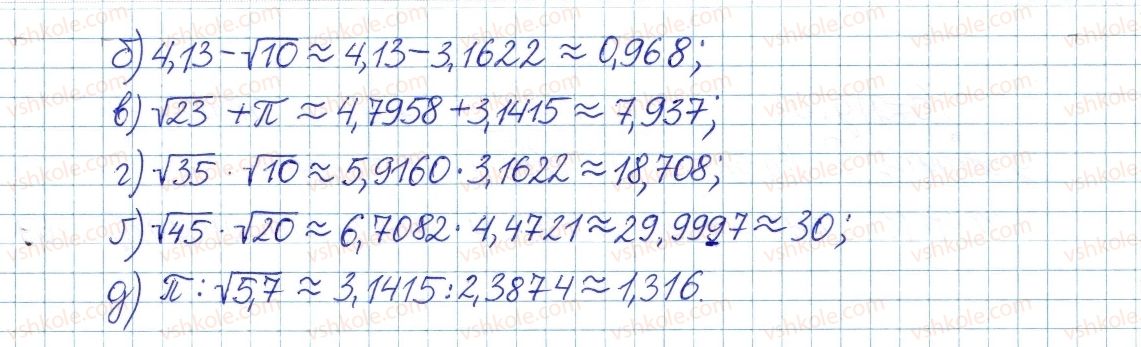 б) 4,13 - √10 ≈ 4,13 - 3,1622 ≈ 0,968;
в) √23 + π ≈ 4,7958 + 3,1415 ≈ 7,937;
г) √35 · √10 ≈ 5,9160 · 3,1622 ≈ 18,708;
ґ) √45 · √20 ≈ 6,7082 · 4,4721 ≈ 29,9997 ≈ 30;
д) π : √5,7 ≈ 3,1415 : 2,3874 ≈ 1,316.
vshkole.com